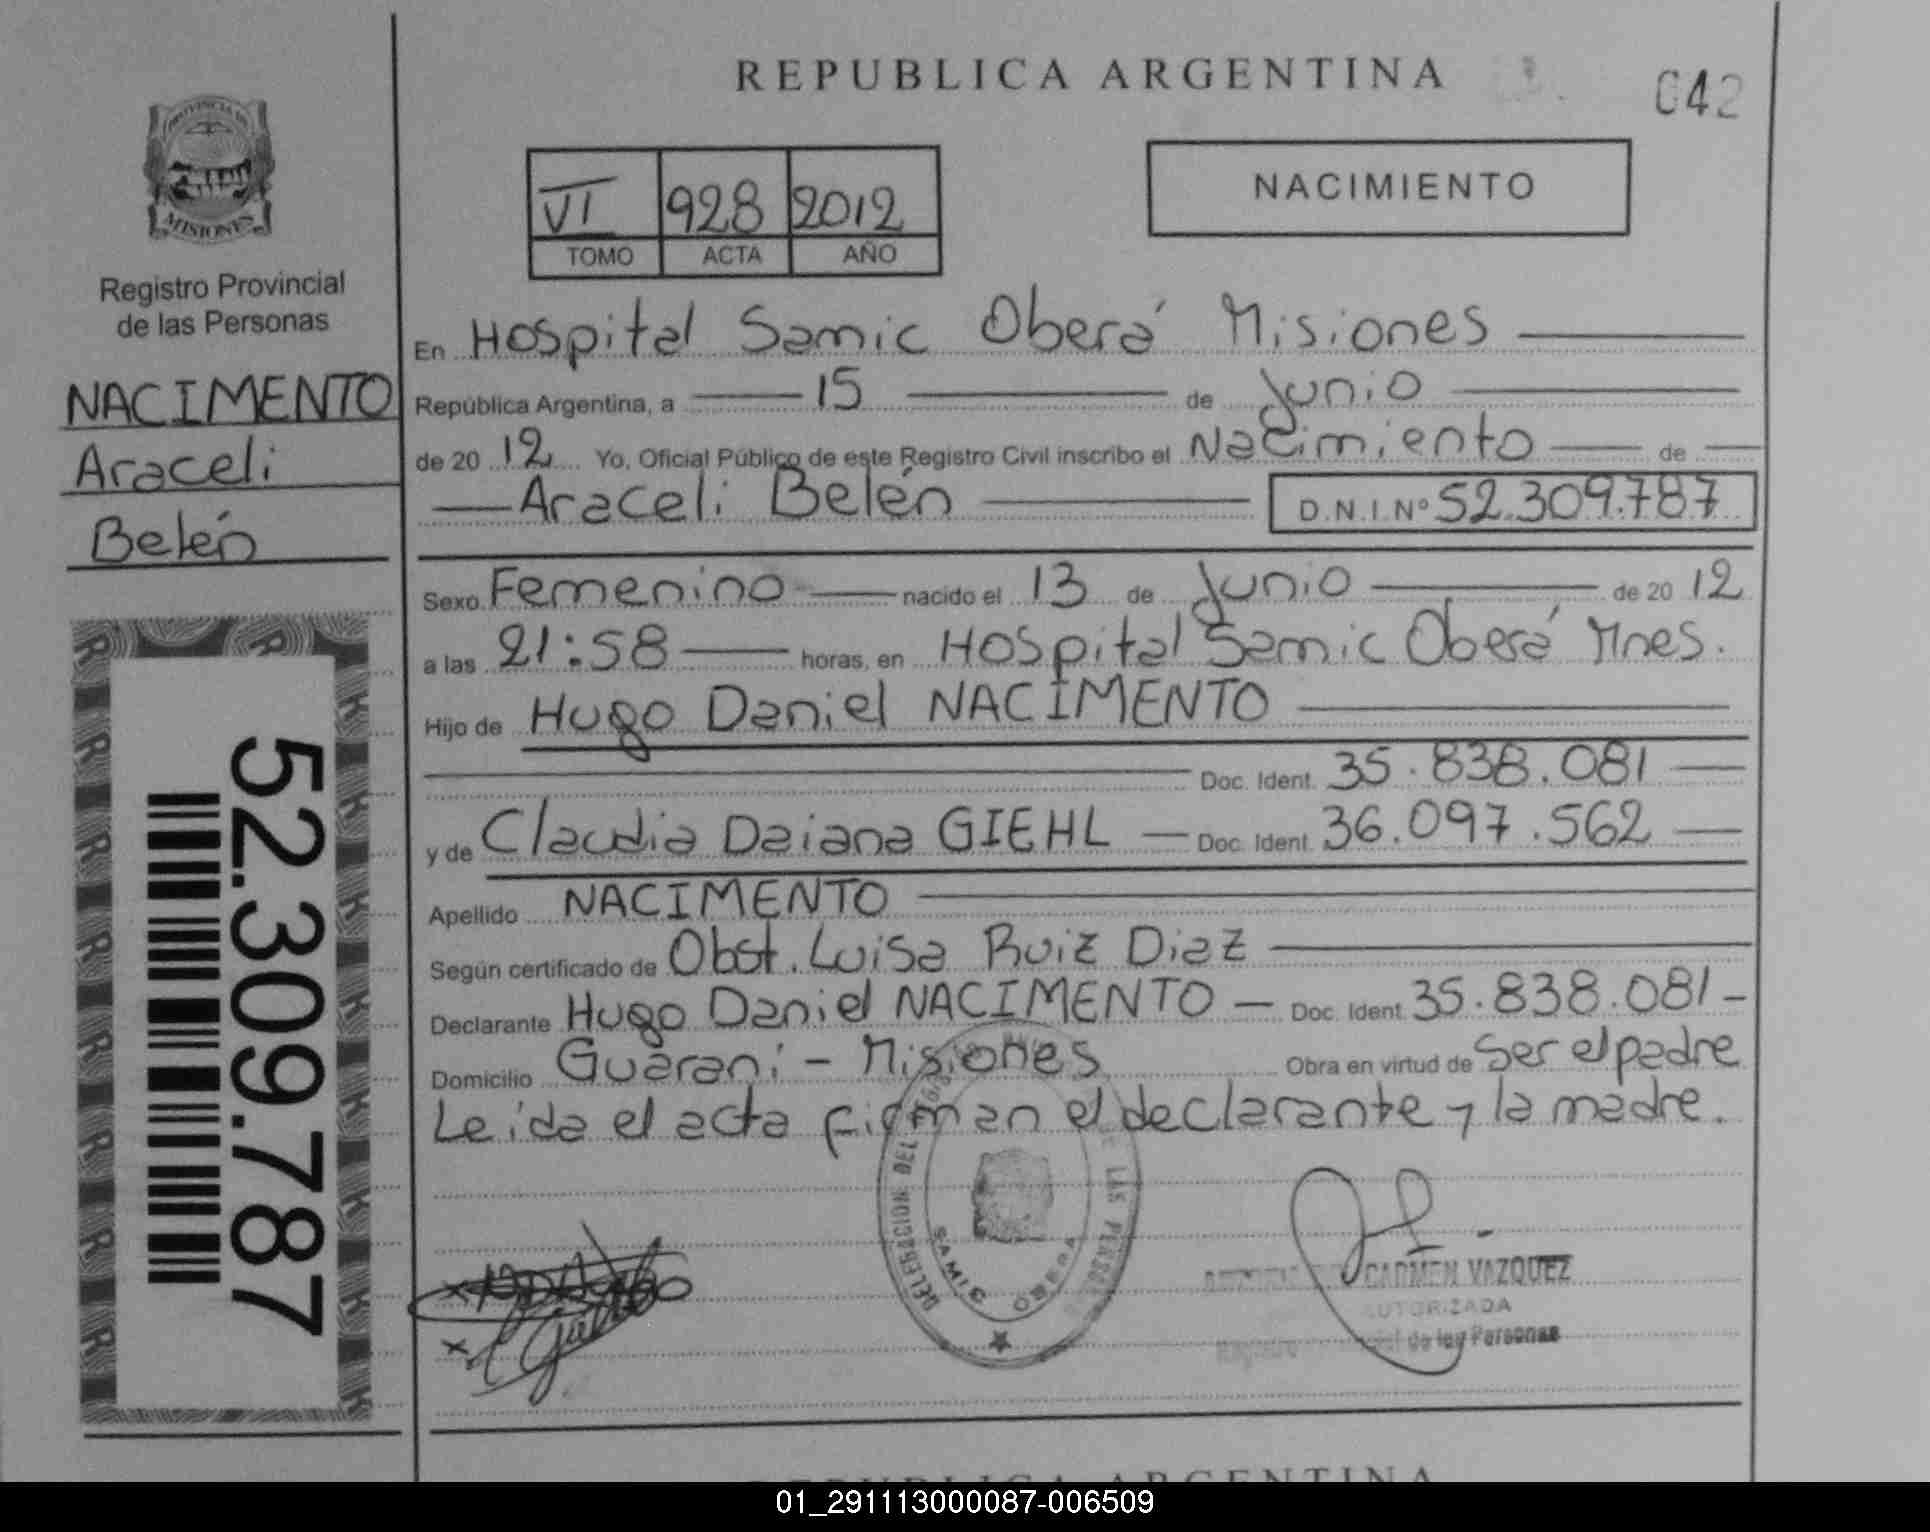 REPUBLICA ARGENTINA
042
PROVINCIA DE
MISIONES
Registro Provincial
de las Personas
NACIMENTO
Araceli
Belén
52.309.787
VI 928 2012
TOMO ACTA AÑO
NACIMIENTO
En Hospital Samic Oberá Misiones
República Argentina, a 15 de Junio
de 20 12 Yo, Oficial Público de este Registro Civil inscribo el Nacimiento de
Araceli Belén D.N.I.Nº 52.309.787
Sexo Femenino nacido el 13 de Junio de 20 12
a las 21:58 horas, en Hospital Samic Oberá Mnes.
Hijo de Hugo Daniel NACIMENTO
Doc. Ident. 35.838.081
y de Claudia Daiana GIEHL Doc. Ident. 36.097.562
Apellido NACIMENTO
Según certificado de Obst. Luisa Ruiz Diaz
Declarante Hugo Daniel NACIMENTO Doc. Ident. 35.838.081
Domicilio Guaraní - Misiones Obra en virtud de Ser el padre
Leída el acta firman el declarante y la madre.
DELEGACION DEL DE LAS PERSO
SAMIC OBERA
CARMEN VAZQUEZ
AUTORIZADA
de las Personas
REPUBLICA ARGENTINA
01_291113000087-006509